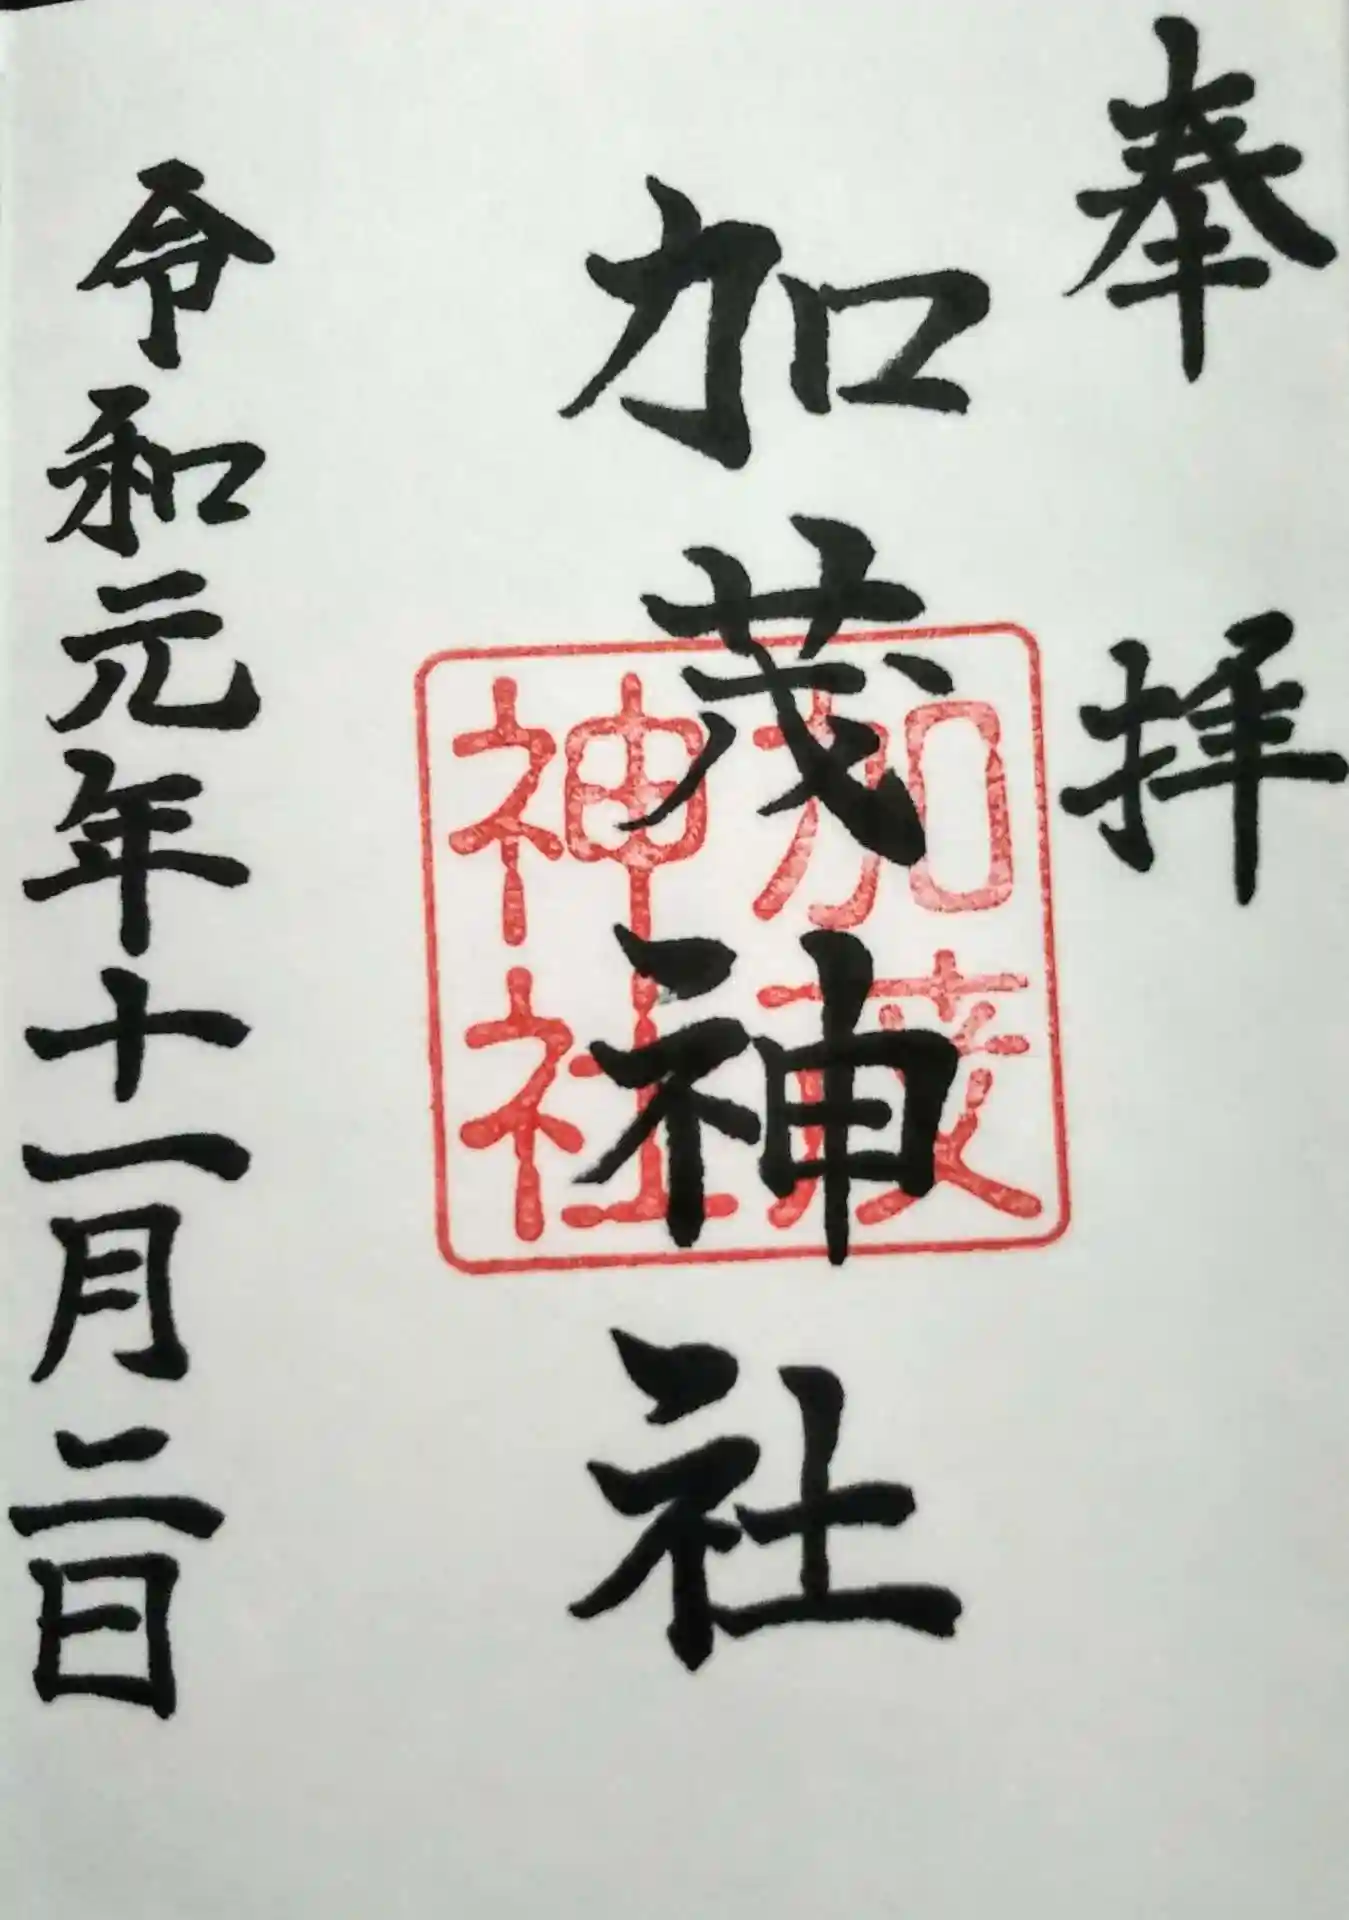 奉拝
加茂神社
加茂神社
令和元年十一月二日